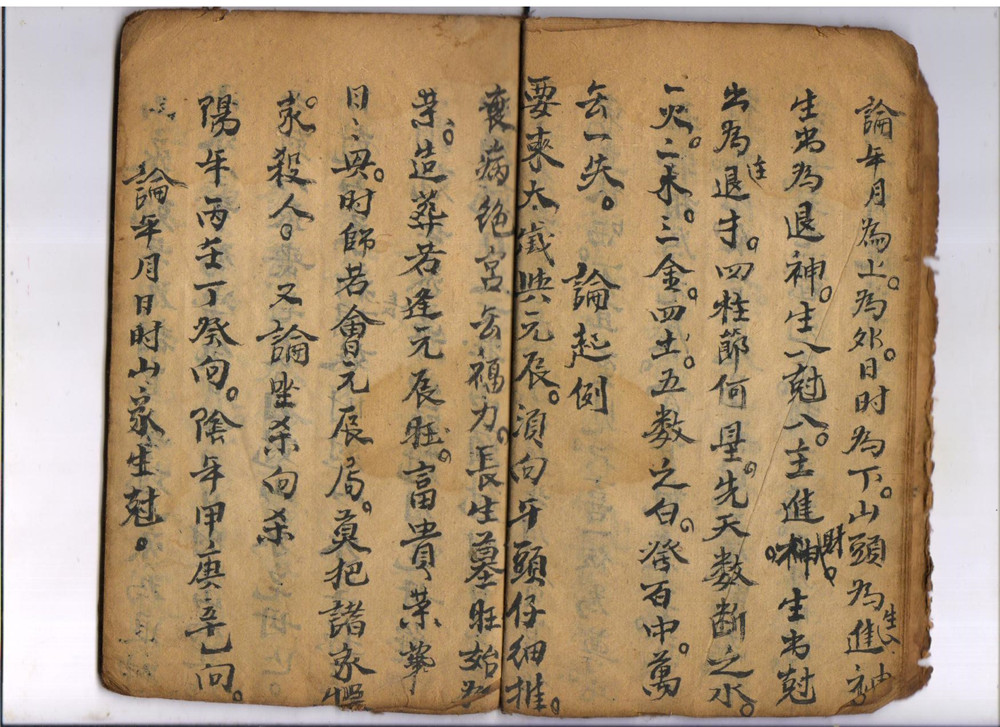 論年月為上。為外。日时為下。山頭為進神生入
生出為退神。生入尅入。主進財。生出尅
出為退才。四柱節何星。先天数断之水
一火二木。三金。四土。五数之白。發百中。萬
云一失。論起例
要來太歲與元辰。須向牙頭仔細推。
衰病绝宮云福力。長生墓旺始
荣。造葬若逢元辰旺。富貴荣華
日日毋。时師若會元辰局。莫把諸家
家。殺人。又論坐杀向杀
陽年丙壬丁癸向。陰年甲庚辛乙向。
論年月日时山家生尅。